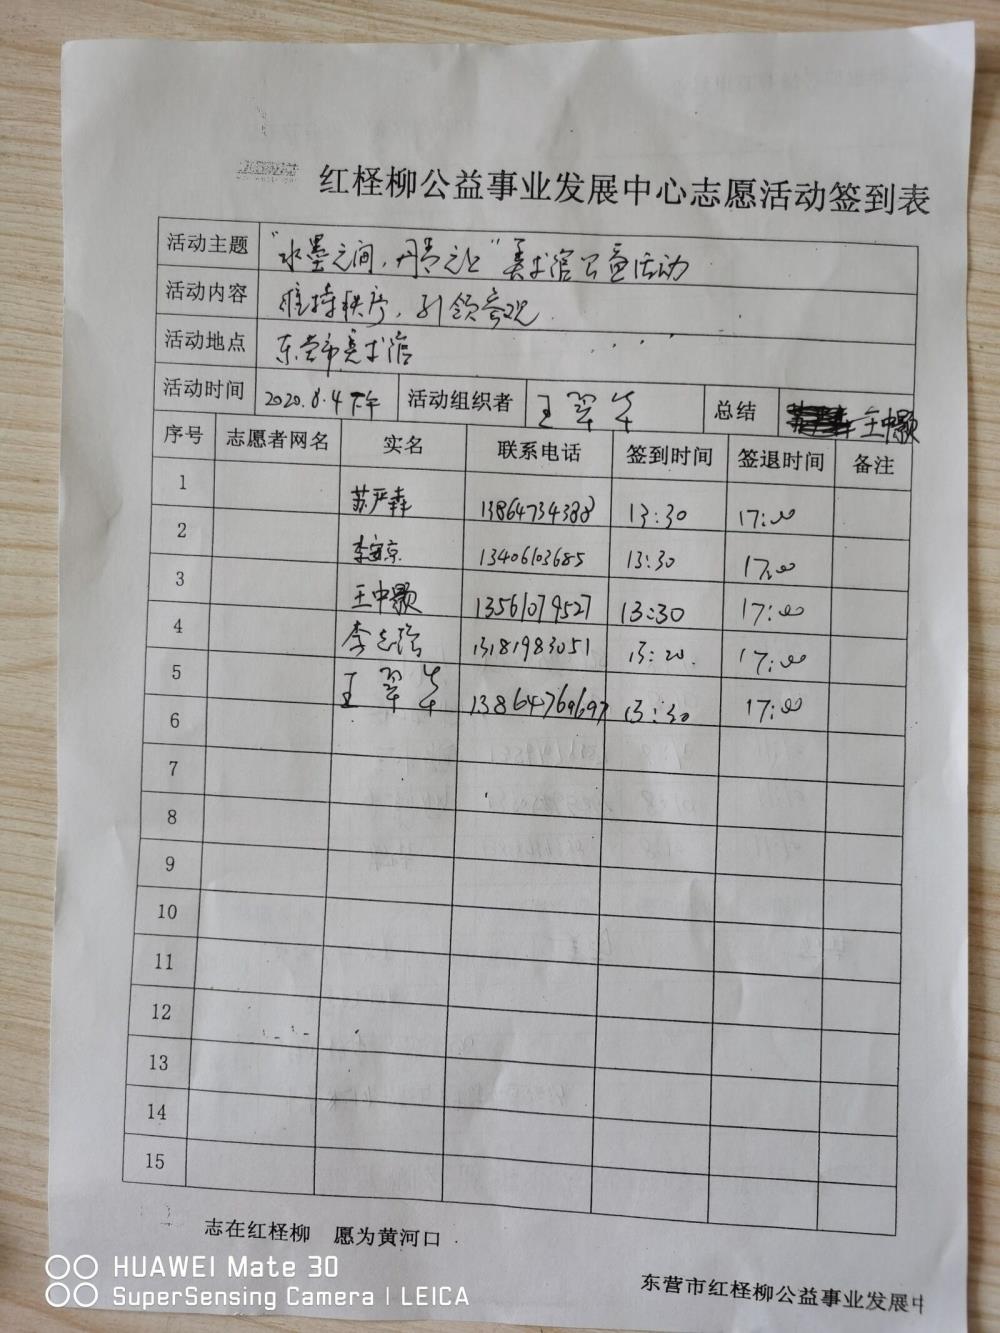 红柽柳公益事业发展中心志愿活动签到表
活动主题 "水墨之间，丹青之上"美术馆公益活动
活动内容 维持秩序，引领参观
活动地点 东营市美术馆
活动时间 2020.8.4下午 活动组织者 王翠华 总结 王中颢
序号 志愿者网名 实名 联系电话 签到时间 签退时间 备注
1 苏严犇 13864734388 13:30 17:00
2 李京 13406103685 13:30 17:00
3 王中颢 13561079527 13:30 17:00
4 李志强 13181983051 13:20. 17:00
5 王翠华 13864769697 13:30 17:00
6
7
8
9
10
11
12
13
14
15
志在红柽柳 愿为黄河口
东营市红柽柳公益事业发展中
HUAWEI Mate 30
SuperSensing Camera | LEICA